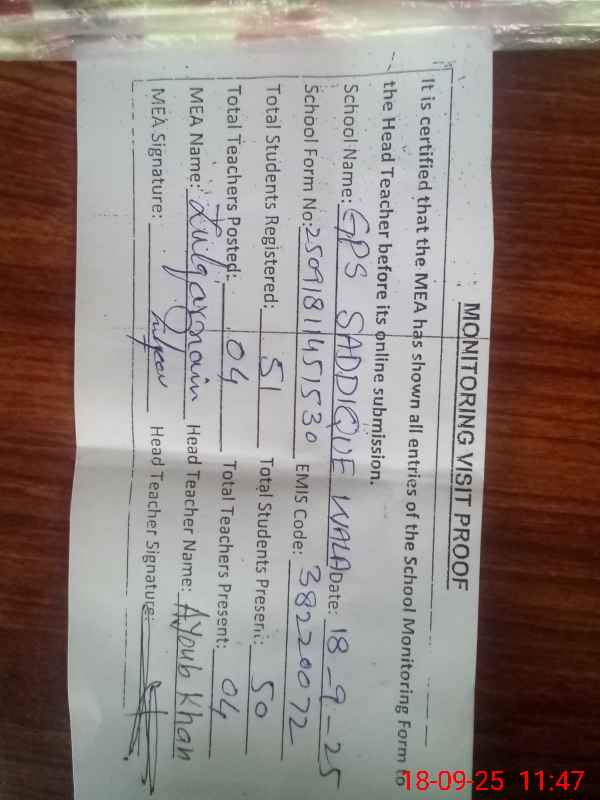 MONITORING VISIT PROOF
It is certified that the MEA has shown all entries of the School Monitoring Form to
the Head Teacher before its online submission.
School Name: GPS SADDIQUE WALA Date: 18-9-25
School Form No: 25091811451530 EMIS Code: 38220072
Total Students Registered: 51 Total Students Present: 50
Total Teachers Posted: 04 Total Teachers Present: 04
MEA Name: Zulqarnain Head Teacher Name: Ayoub Khan
MEA Signature: Head Teacher Signature:
18-09-25 11:47